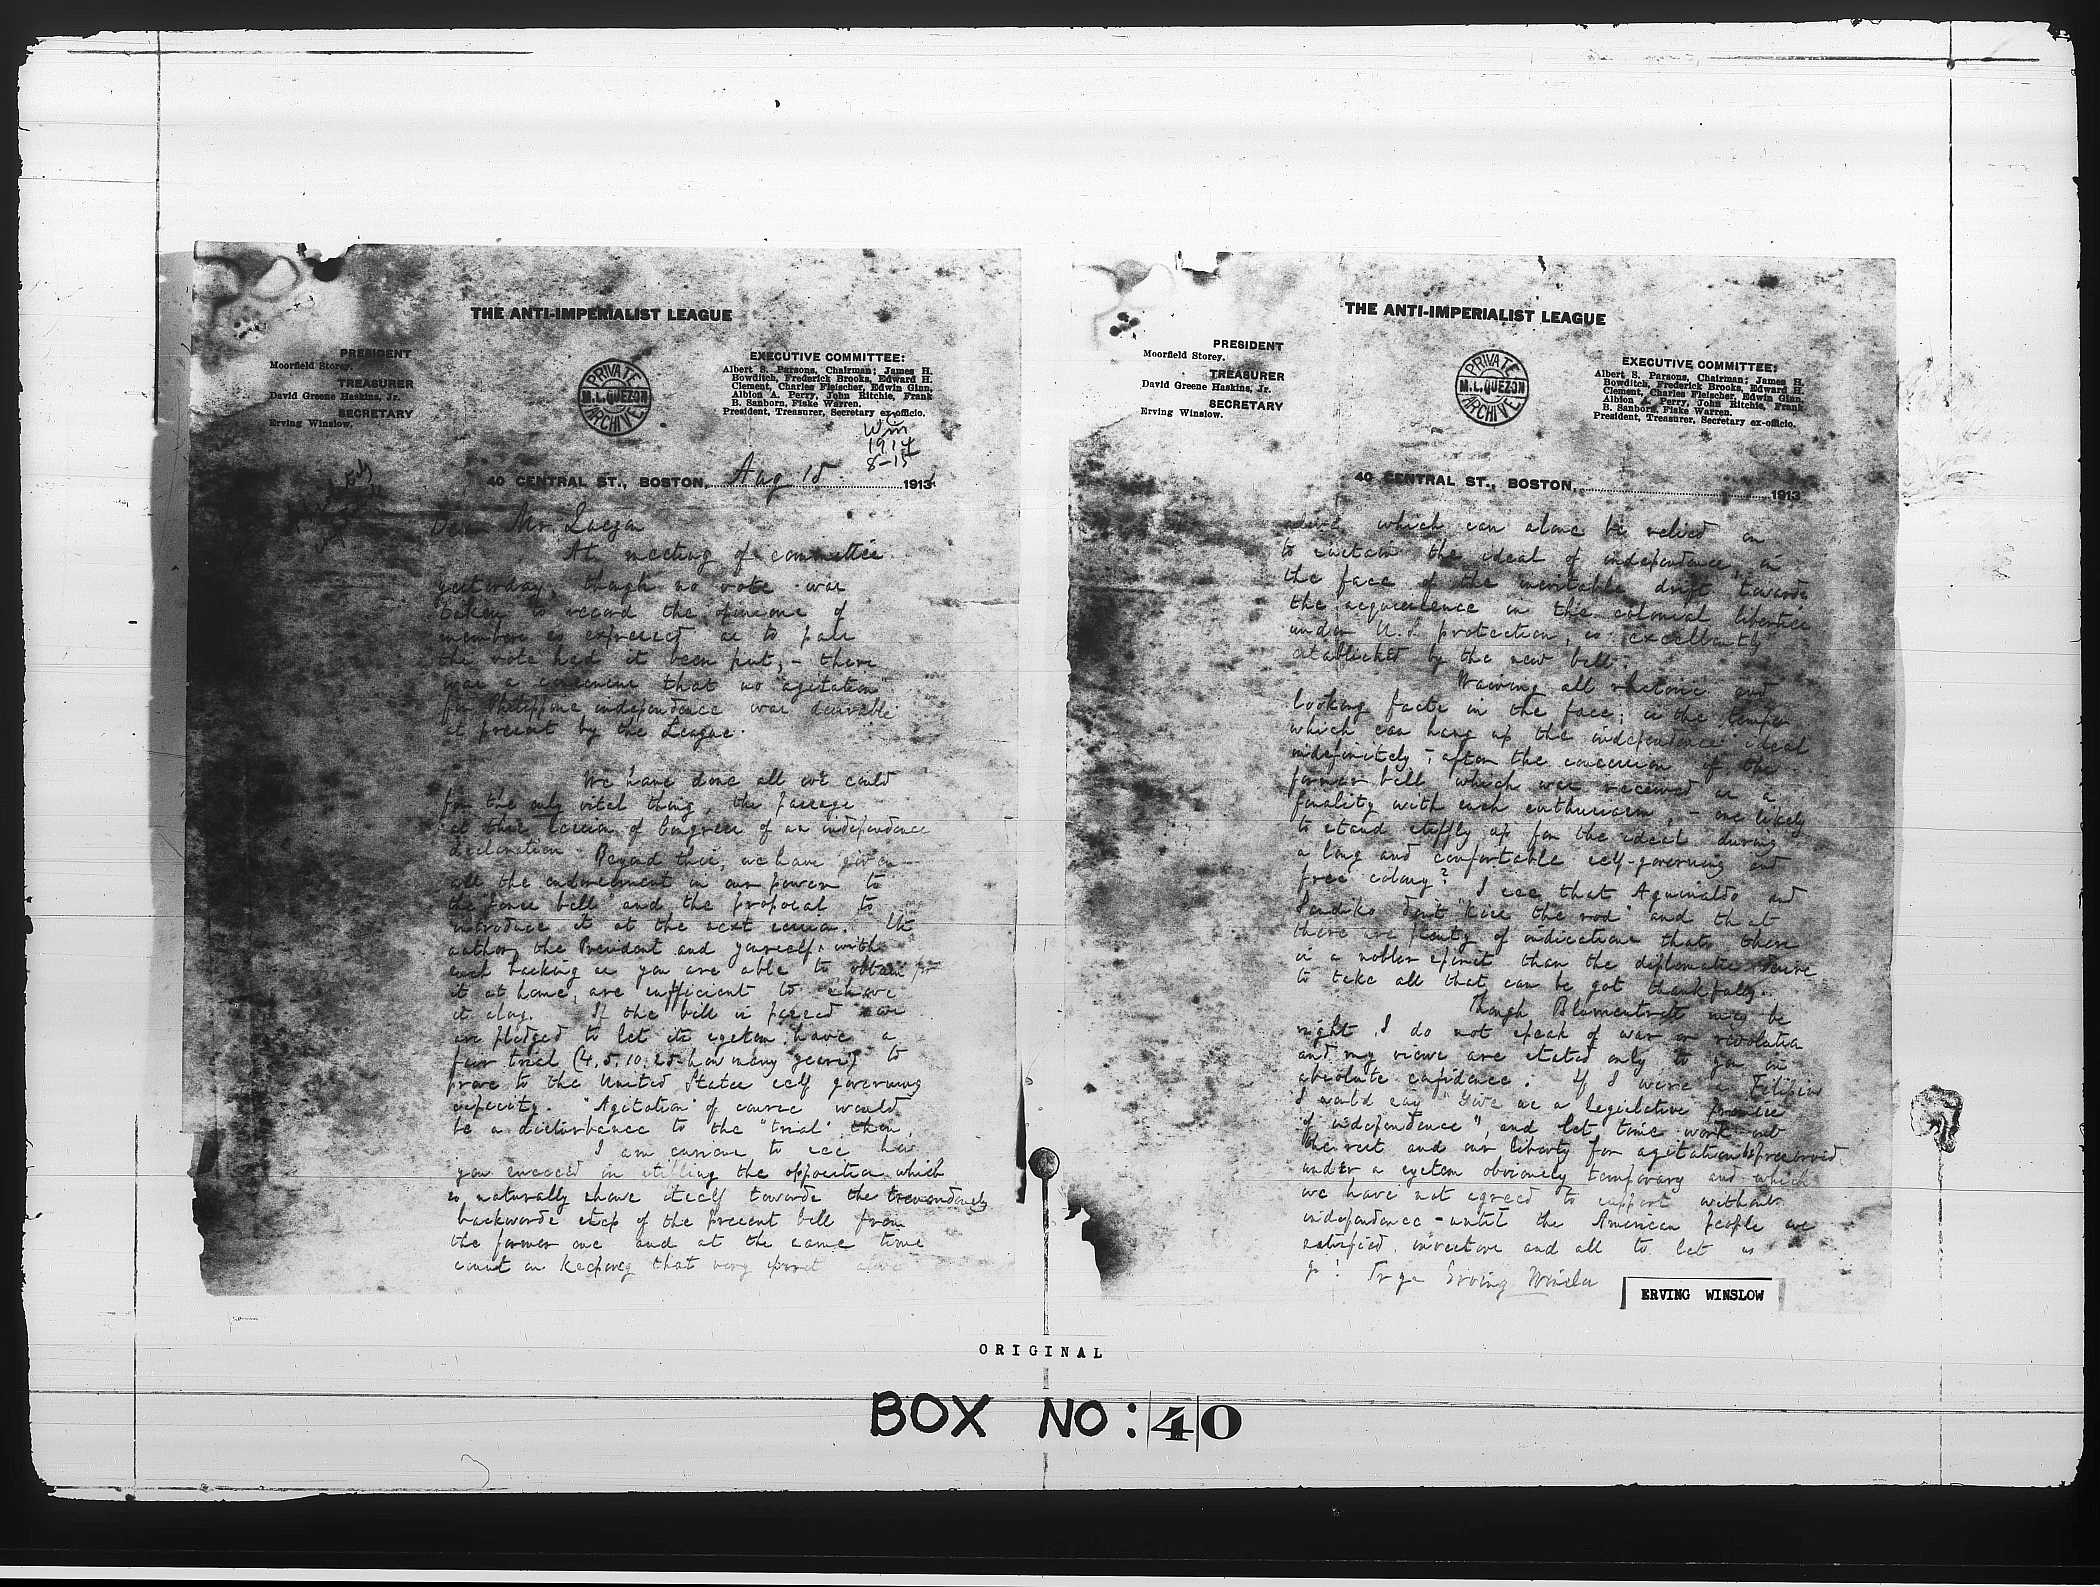 THE ANTI-IMPERIALIST LEAGUE
PRESIDENT
Moorfield Storey.
TREASURER
David Greene Haskins, Jr.
SECRETARY
Erving Winslow.
PRIVATE
M. L. QUEZON
ARCHIVE
EXECUTIVE COMMITTEE:
Albert S. Parsons, Chairman; James H.
Bowditch, Frederick Brooks, Edward H.
Clement, Charles Fleischer, Edwin Ginn,
Albion A. Perry, John Ritchie, Frank
B. Sanborn, Fiske Warren.
President, Treasurer, Secretary ex-officio.
1914
8-15
40 CENTRAL ST., BOSTON, Aug 15 1913
Dear Mr Quezon
At meeting of committee
yesterday, though no vote was
taken to record the opinions of
members as expressed as to pass
the vote had it been put, - there
was a consensus that no "agitation"
for Philippine independence was desirable
at present by the League.
We have done all we could
for the only vital thing, the passage
at this session of Congress of an independence
declaration. Beyond this, we have given
all the endorsement in our power to
the Jones bill and the proposal to
introduce it at the next session. Its
author, the President and yourself, with
such backing as you are able to obtain for
it at home, are sufficient to shove
it along. If the bill is passed we
are pledged to let its system have a
fair trial (4, 5, 10, 25 - how many years?) to
prove to the United States self governing
capacity. "Agitation" of course would
be a disturbance to the "trial" then.
I am curious to see how
you succeed in stilling the opposition which
so naturally shows itself towards the tremendously
backwards step of the present bill from
the former one and at the same time
count on keeping that very spirit alive
THE ANTI-IMPERIALIST LEAGUE
PRESIDENT
Moorfield Storey.
TREASURER
David Greene Haskins, Jr.
SECRETARY
Erving Winslow.
PRIVATE
M. L. QUEZON
ARCHIVE
EXECUTIVE COMMITTEE:
Albert S. Parsons, Chairman; James H.
Bowditch, Frederick Brooks, Edward H.
Clement, Charles Fleischer, Edwin Ginn,
Albion A. Perry, John Ritchie, Frank
B. Sanborn, Fiske Warren.
President, Treasurer, Secretary ex-officio.
40 CENTRAL ST., BOSTON, 1913
which can alone be relied on
to sustain the ideal of independence, in
the face of the inevitable drift towards
the acquiescence in the colonial liberties
under U.S. protection, so excellently
established by the new bill.
Waiving all rhetoric and
looking facts in the face; is the temper
which can hang up the independence ideal
indefinitely, after the concession of the
former bill which was received as a
finality with such enthusiasm, - one likely
to stand stiffly up for the ideal during
a long and comfortable self-governing and
free colony? I see that Aguinaldo and
Sandiko don't "kiss the rod" and that
there are plenty of indications that there
is a nobler spirit than the diplomatic desire
to take all that can be got thankfully.
Though Blumentritt may be
right I do not speak of war or revolution
and my views are stated only to you in
absolute confidence. If I were a Filipino
I would say "Give us a legislative promise
of independence", and let time work out
the rest and our liberty for agitation be preserved
under a system obviously temporary and which
we have not agreed to support without
independence - until the American people are
satisfied, investors and all to let us
go! Trly Erving Winslow
ERVING WINSLOW
ORIGINAL
BOX NO: 40